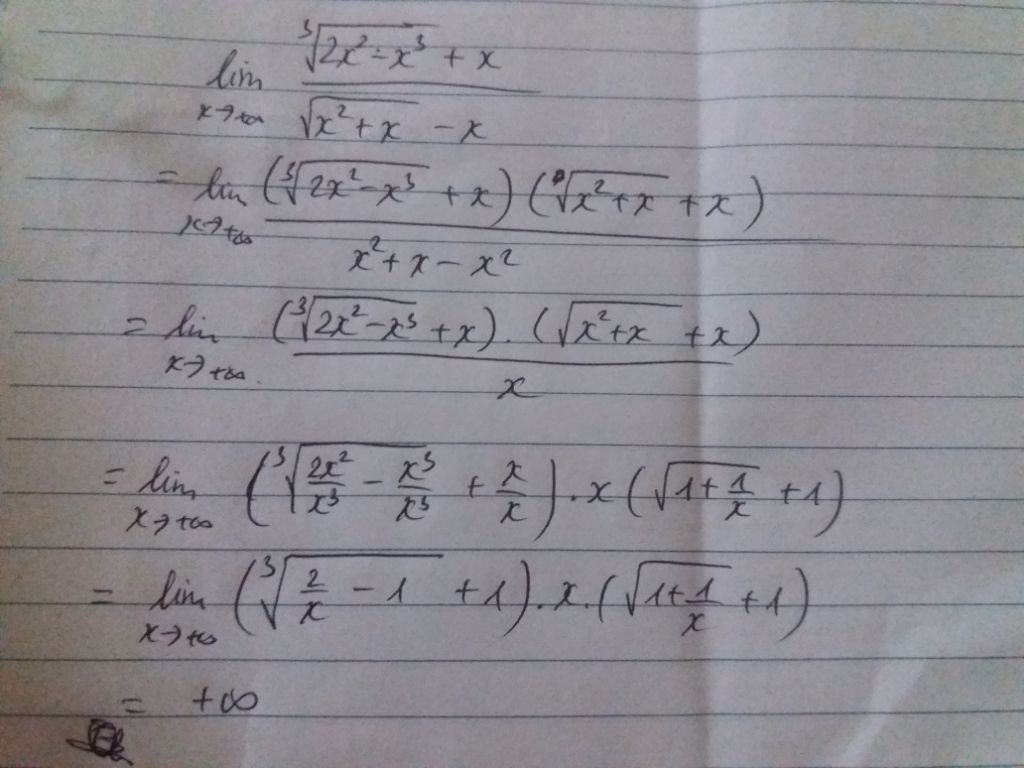 lim x→+∞ (∛(2x² - x³) + x) / (√(x² + x) - x)
= lim x→+∞ (∛(2x² - x³) + x)(√(x² + x) + x) / (x² + x - x²)
= lim x→+∞ (∛(2x² - x³) + x) . (√(x² + x) + x) / x
= lim x→+∞ (∛(2x²/x³ - x³/x³) + x/x) . x (√(1 + 1/x) + 1)
= lim x→+∞ (∛(2/x - 1) + 1) . x . (√(1 + 1/x) + 1)
= +∞